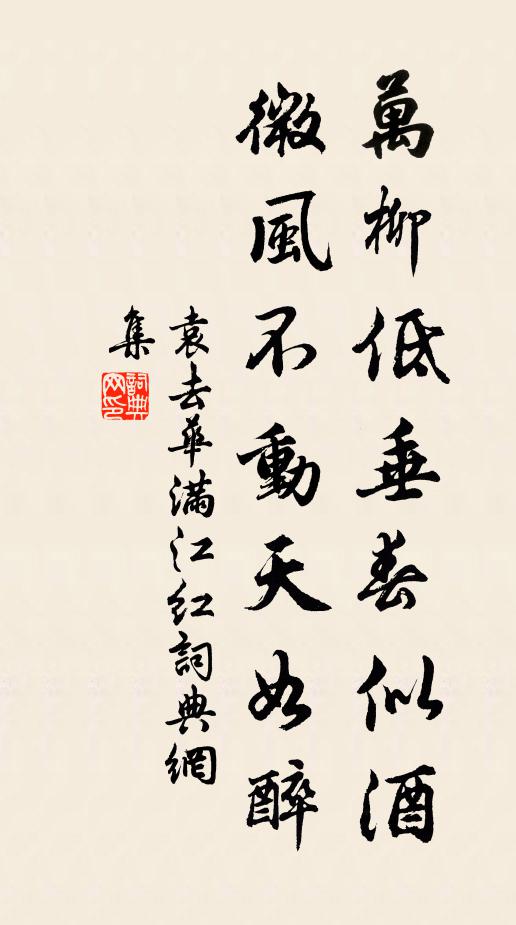 萬柳低垂春似酒
微風不動天如醉
袁去華滿江红詞典網
集
詞典
网印